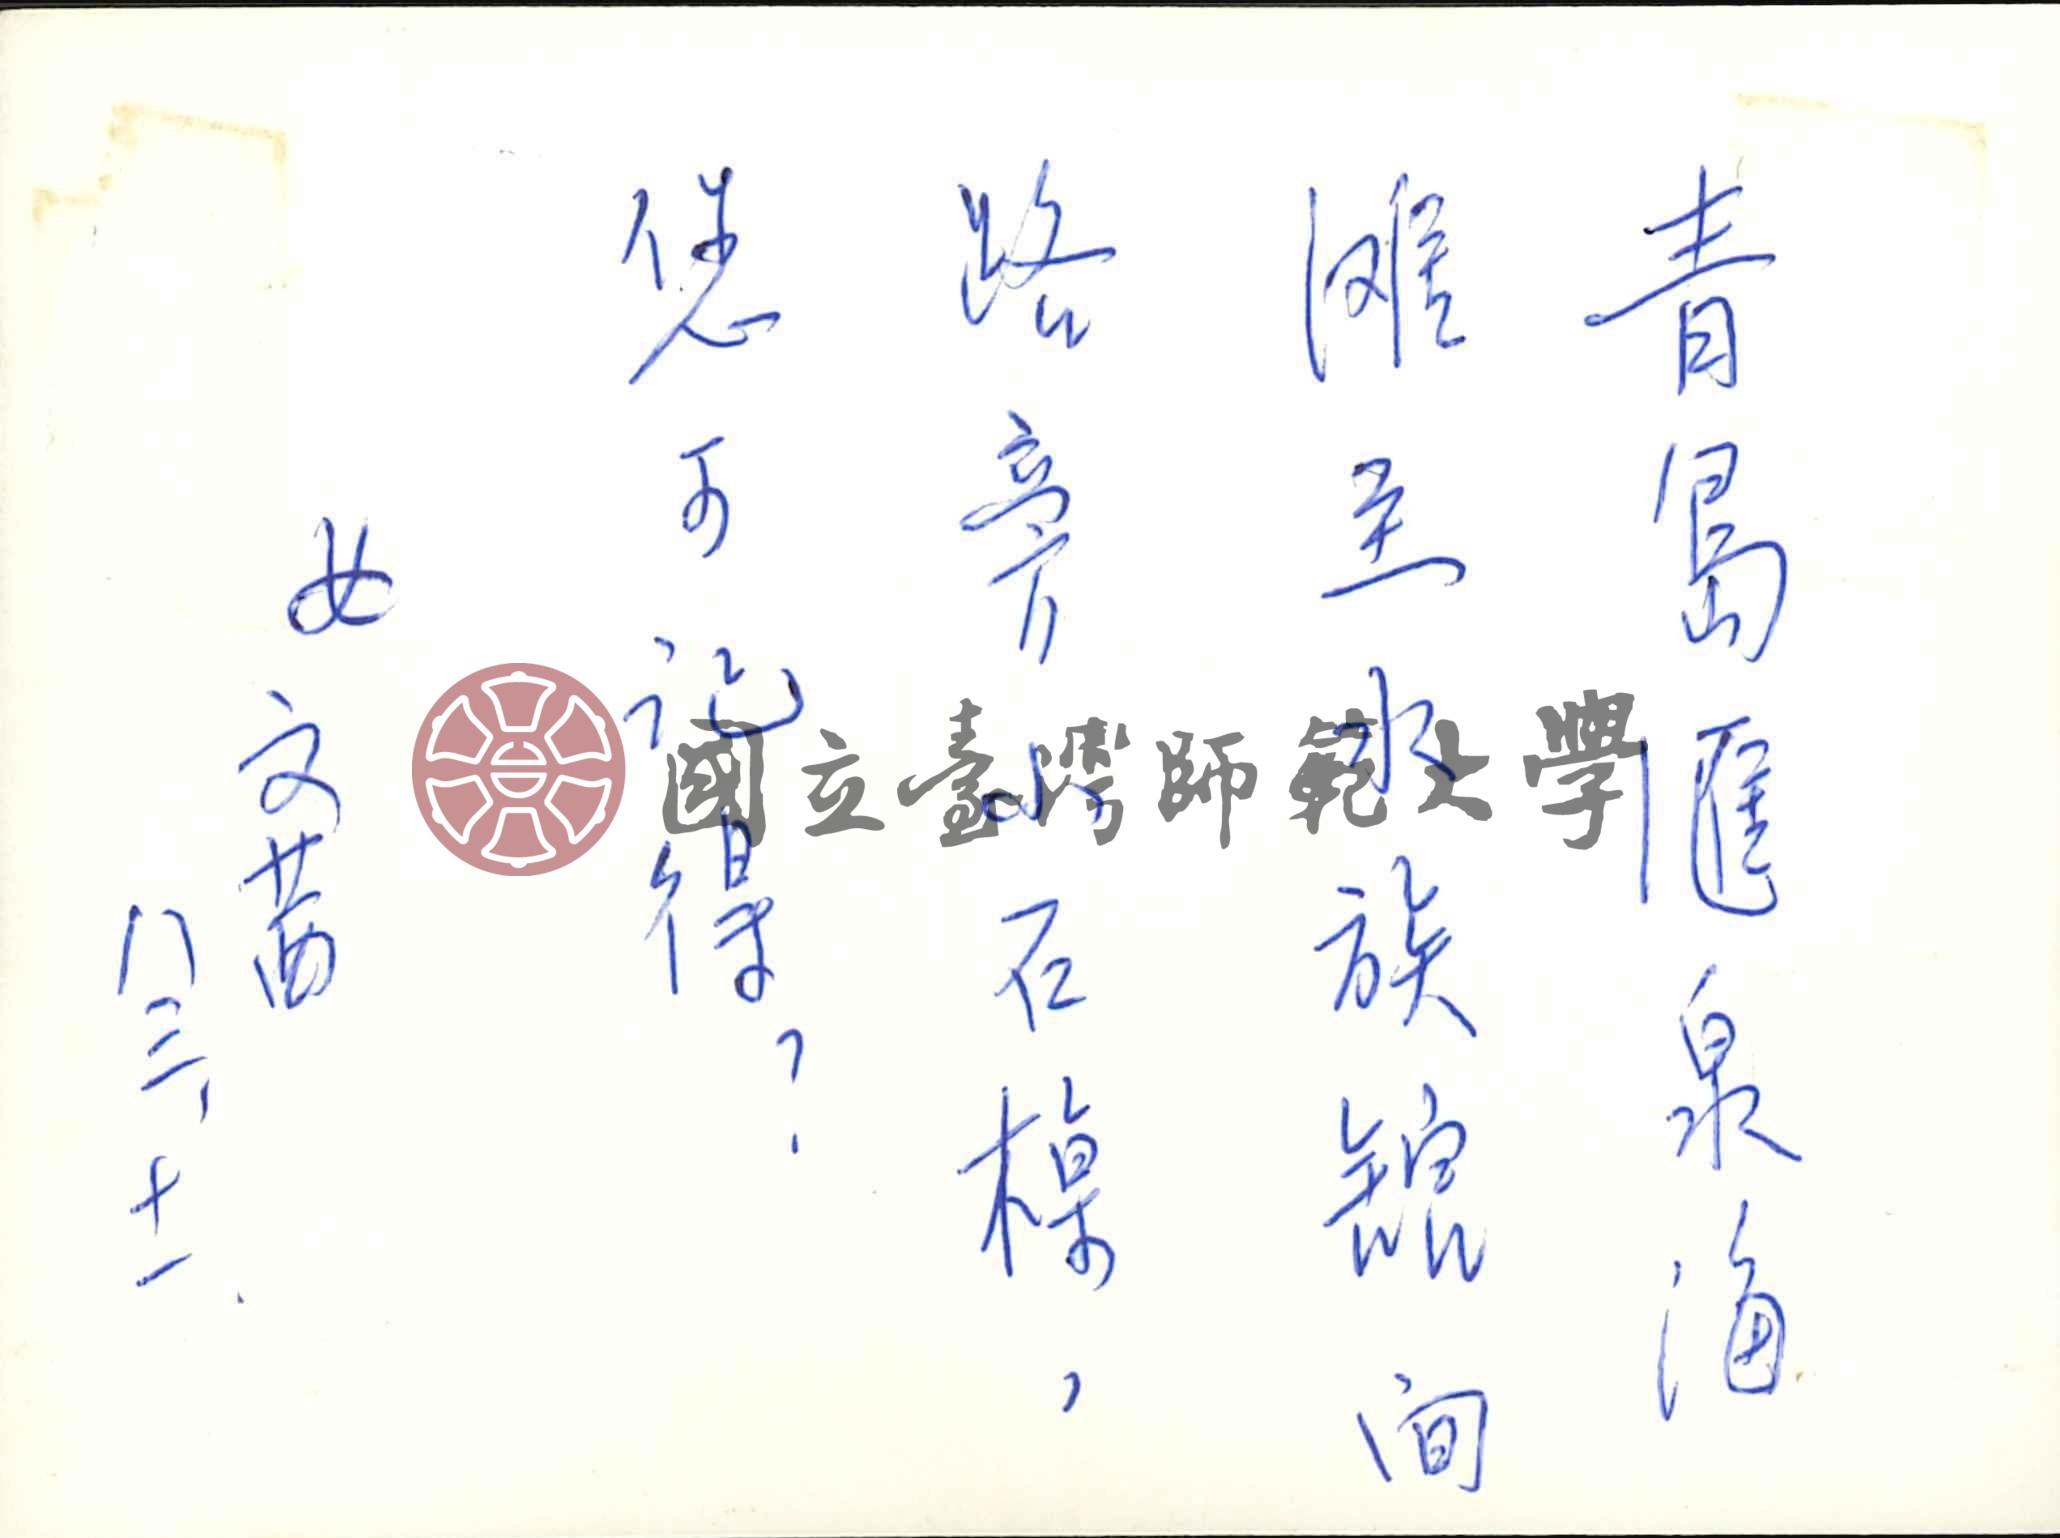 青島匯泉海
灘至水族館间
路旁小石樟，
您可记得？
女
文茜
八三、十一、
國立臺灣師範大學